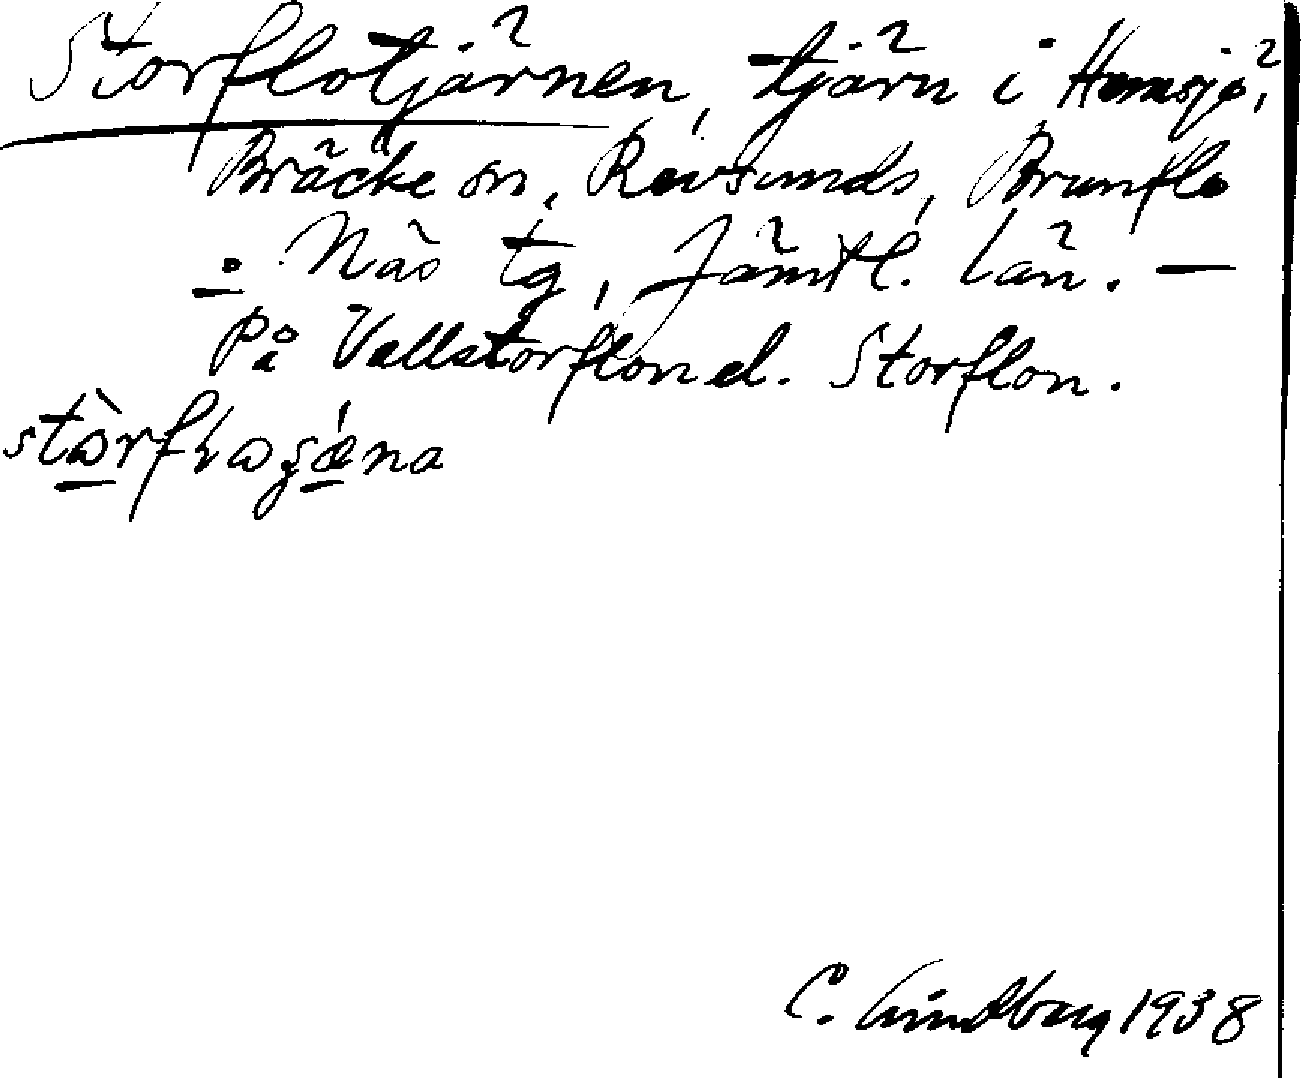 Storflotjärnen, tjärn i Hemsjö,
Bräcke sn, Revsunds, Brunflo
o. Näs tg, Jämtl. län. —
På Vallstorflon el. Storflon.
C. Lindberg 1938